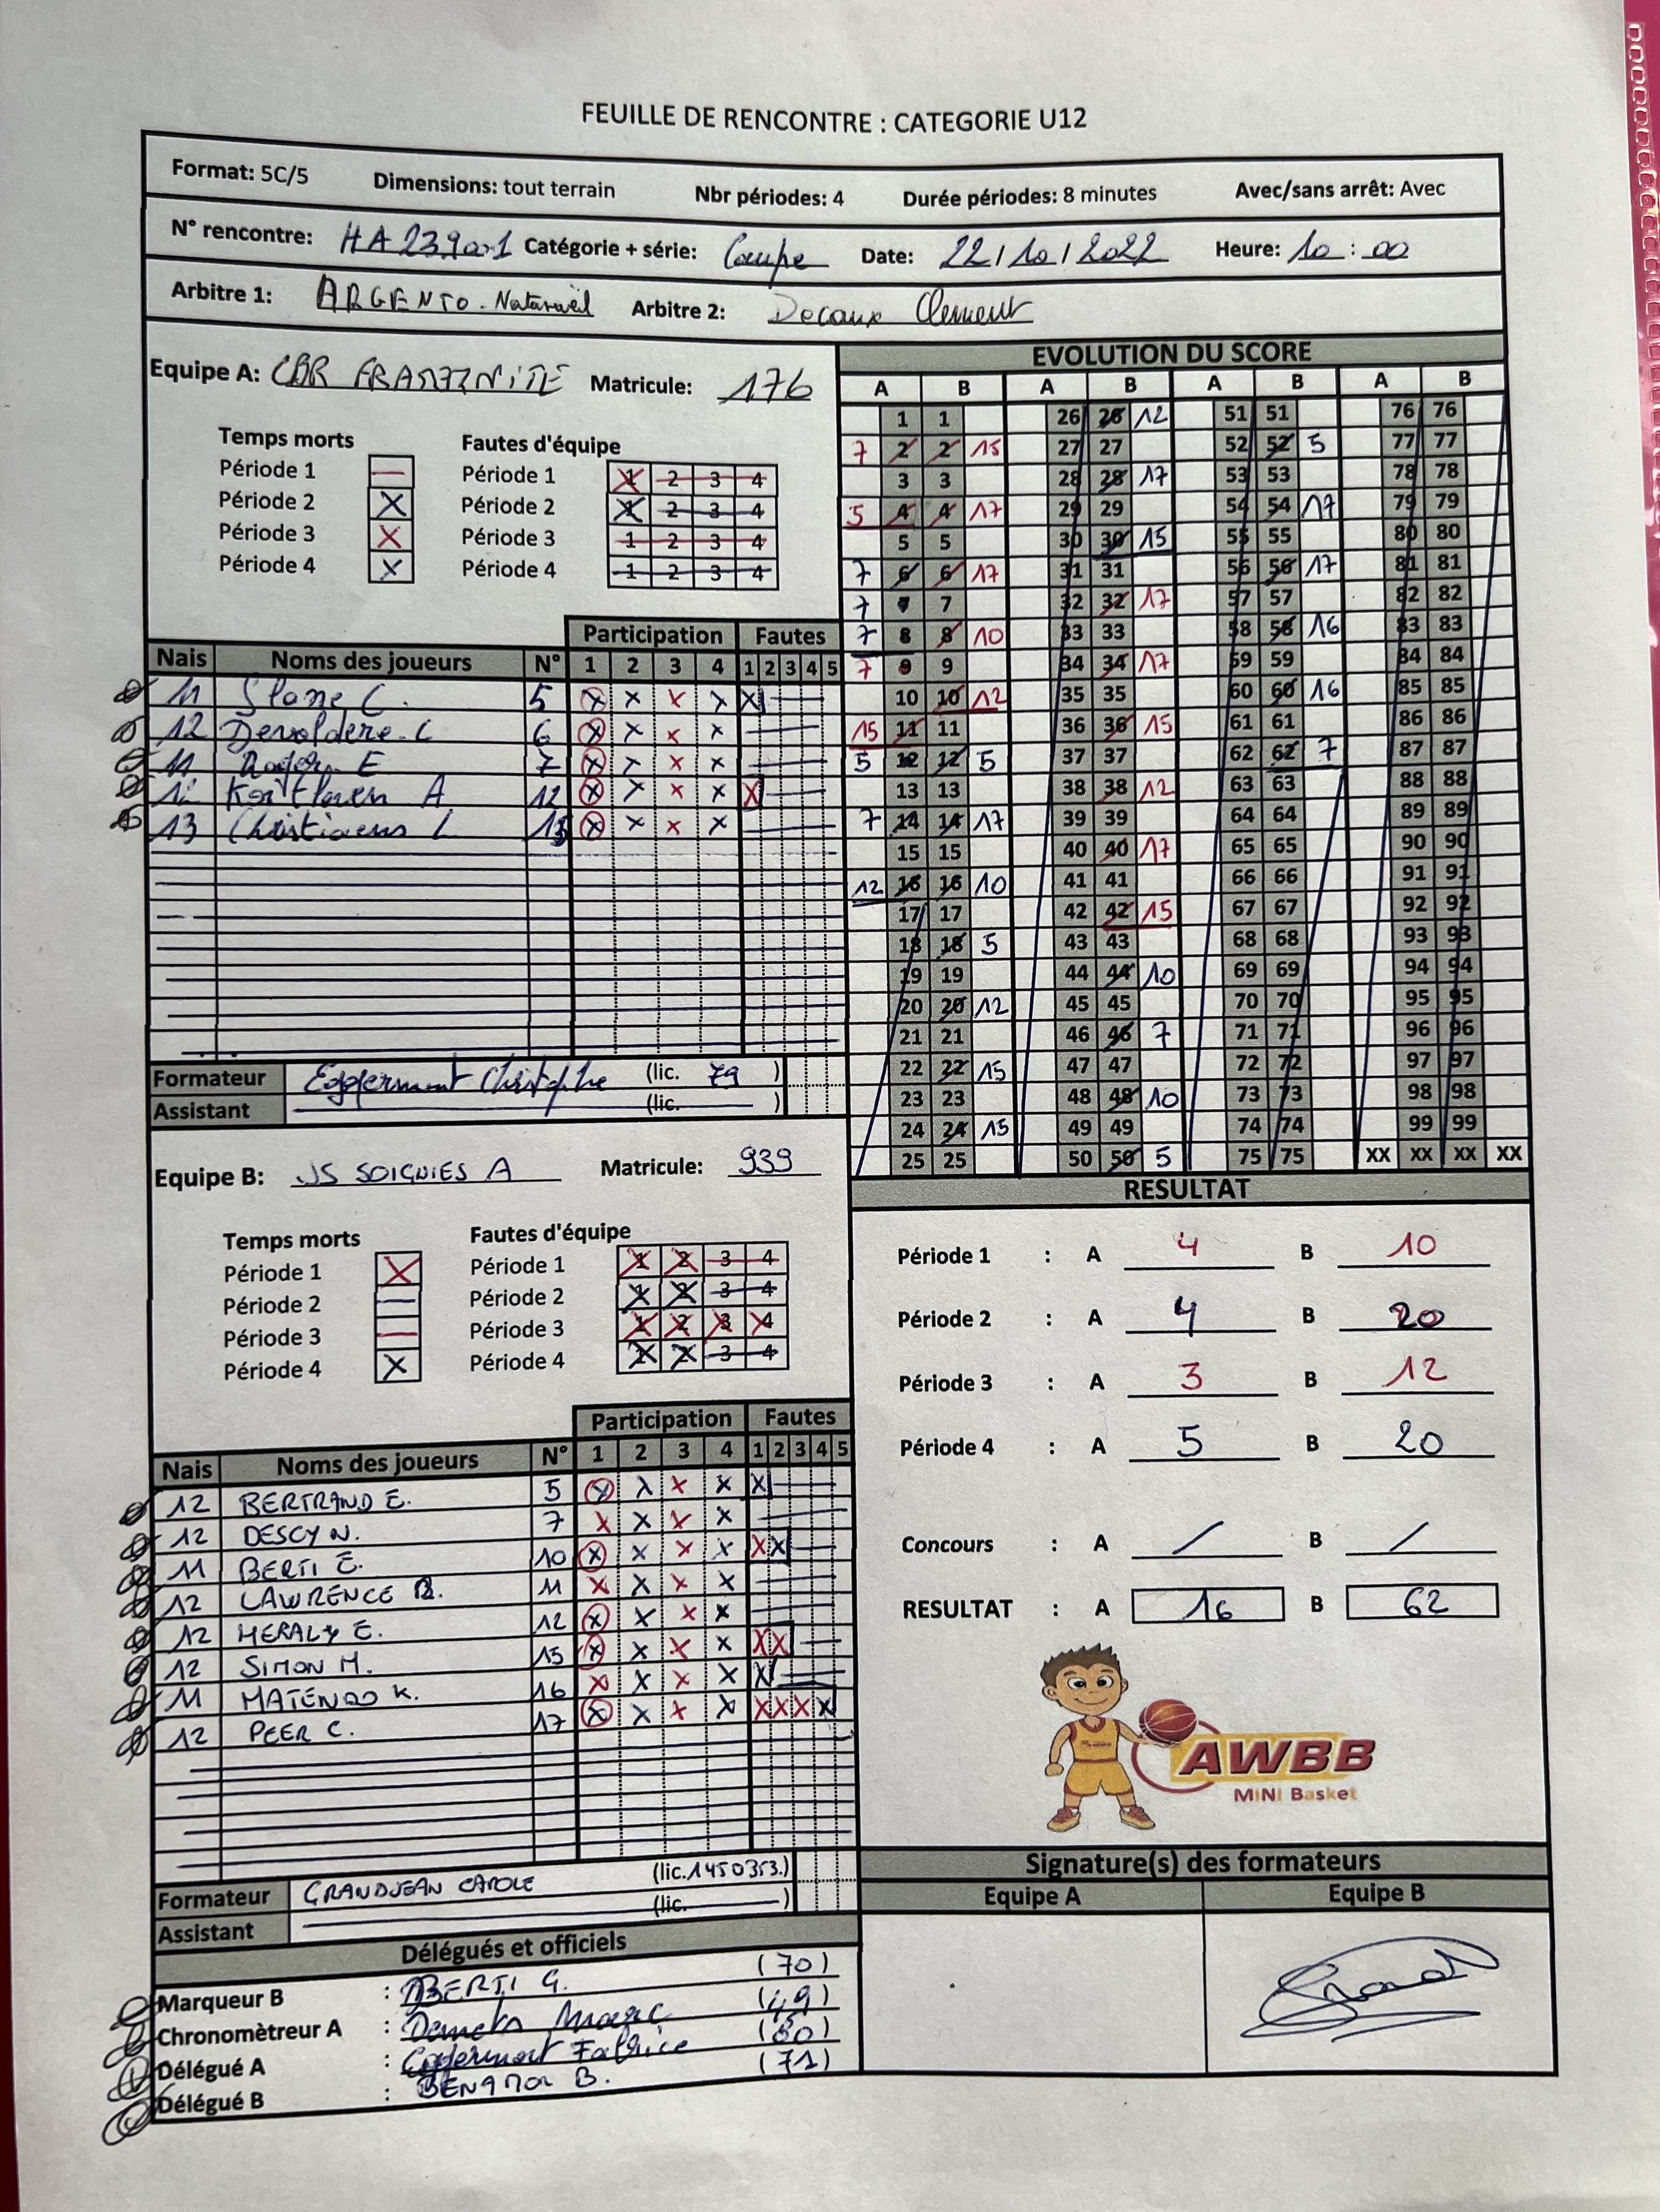 FEUILLE DE RENCONTRE : CATEGORIE U12
Format: 5C/5 Dimensions: tout terrain Nbr périodes: 4 Durée périodes: 8 minutes Avec/sans arrêt: Avec
N° rencontre: HA239001 Catégorie + série: Coupe Date: 22/10/2022 Heure: 10:00
Arbitre 1: ARGENTO Arbitre 2: Decaux Clement
Equipe A: CBR Matricule: 176
Temps morts Fautes d'équipe
Période 1 — Période 1 1 2 3 4
Période 2 X Période 2 1 2 3 4
Période 3 X Période 3 1 2 3 4
Période 4 X Période 4 1 2 3 4
Participation Fautes
Nais Noms des joueurs N° 1 2 3 4 1 2 3 4 5
11 Slane C. 5 X X X X X
12 Devoldere C 6 X X X X
11 E 7 X X X X
12 A. 12 X X X X X
13 Christiaens L 13 X X X X
Formateur Eggermont Christophe (lic. 79 )
Assistant (lic. )
Equipe B: JS SOIGNIES A Matricule: 939
Temps morts Fautes d'équipe
Période 1 X Période 1 1 2 3 4
Période 2 — Période 2 1 2 3 4
Période 3 — Période 3 1 2 3 4
Période 4 X Période 4 1 2 3 4
Participation Fautes
Nais Noms des joueurs N° 1 2 3 4 1 2 3 4 5
12 BERTRAND E. 5 X X X X X
12 DESCY N. 7 X X X X
11 BERTI E. 10 X X X X X X
12 LAWRENCE B. 11 X X X X
12 HERALY E. 12 X X X X
12 SIMON M. 15 X X X X X X
11 MATENDO K. 16 X X X X X
12 PEER C. 17 X X X X X X X X
Formateur GRANDJEAN CAROLE (lic. 1450353.)
Assistant (lic. )
Délégués et officiels
Marqueur B : BERTI G. (70)
Chronomètreur A : Marc (49)
Délégué A : Eggermont Fabrice (80)
Délégué B : BENAMOR B. (71)
EVOLUTION DU SCORE
A B A B A B A B
1 1 26 26 12 51 51 76 76
7 2 2 15 27 27 52 52 5 77 77
3 3 28 28 17 53 53 78 78
5 4 4 17 29 29 54 54 17 79 79
5 5 30 30 15 55 55 80 80
7 6 6 17 31 31 56 56 17 81 81
7 7 7 32 32 17 57 57 82 82
7 8 8 10 33 33 58 58 16 83 83
7 9 9 34 34 17 59 59 84 84
10 10 12 35 35 60 60 16 85 85
15 11 11 36 36 15 61 61 86 86
5 12 12 5 37 37 62 62 7 87 87
13 13 38 38 12 63 63 88 88
7 14 14 17 39 39 64 64 89 89
15 15 40 40 17 65 65 90 90
12 16 16 10 41 41 66 66 91 91
17 17 42 42 15 67 67 92 92
18 18 5 43 43 68 68 93 93
19 19 44 44 10 69 69 94 94
20 20 12 45 45 70 70 95 95
21 21 46 46 7 71 71 96 96
22 22 15 47 47 72 72 97 97
23 23 48 48 10 73 73 98 98
24 24 15 49 49 74 74 99 99
25 25 50 50 5 75 75 XX XX XX XX
RESULTAT
Période 1 : A 4 B 10
Période 2 : A 4 B 20
Période 3 : A 3 B 12
Période 4 : A 5 B 20
Concours : A / B /
RESULTAT : A 16 B 62
AWBB
MINI Basket
Signature(s) des formateurs
Equipe A Equipe B